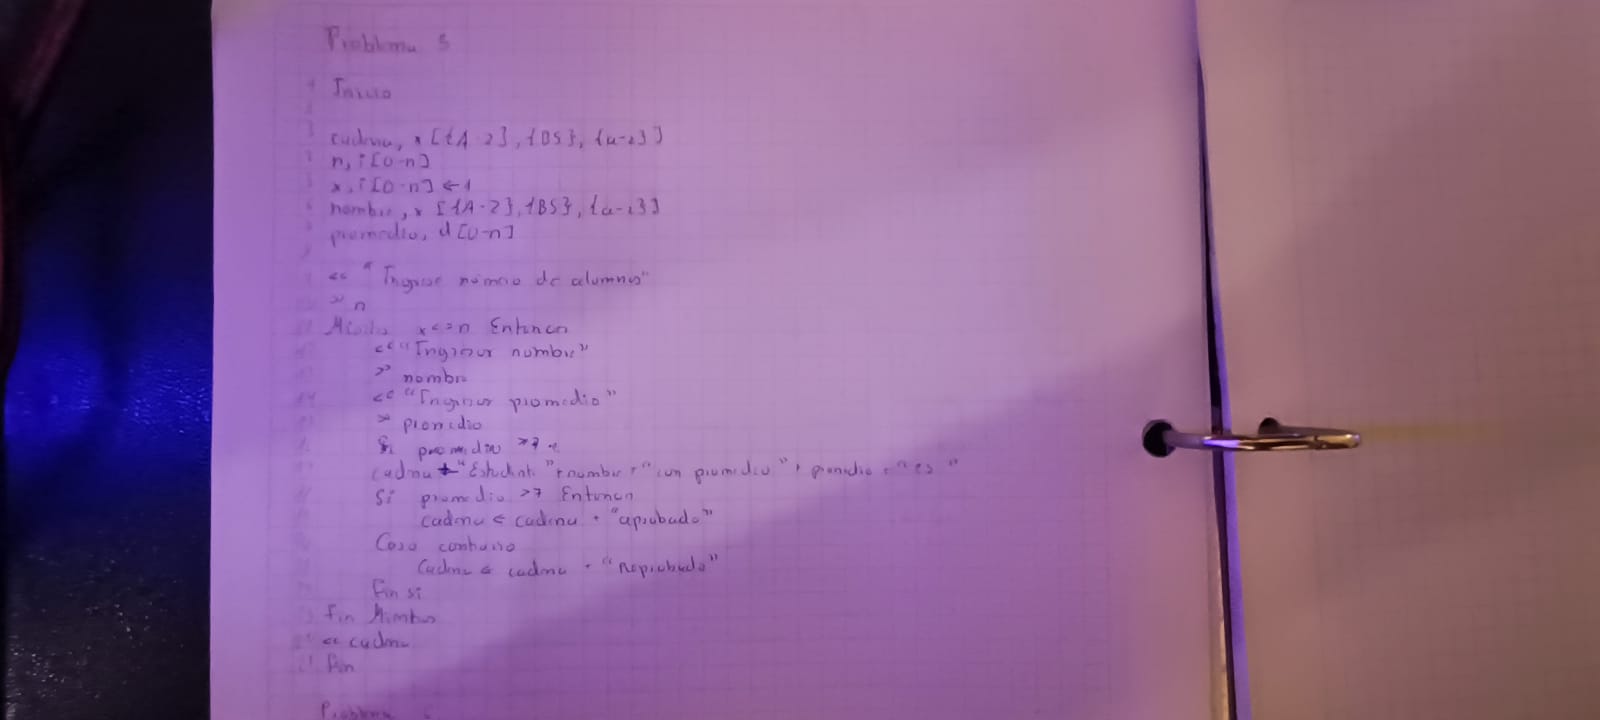 Problema 5
Inicio
cadena, x [{A-Z}, {BS}, {a-z}]
n, i [0-n]
x, i [0-n] ← 1
nombre, x [{A-Z}, {BS}, {a-z}]
promedio, d [0-n]
<< "Ingrese número de alumnos"
>> n
Mientras x<=n Entonces
<< "Ingresar nombre"
>> nombre
<< "Ingresar promedio"
>> promedio
Si promedio >7
cadena "Estudiante " + nombre + "con promedio" + promedio + "es "
Si promedio >7 Entonces
cadena ← cadena + "aprobado"
Caso contrario
cadena ← cadena + "Reprobado"
Fin si
Fin Mientras
<< cadena
Fin
Problema